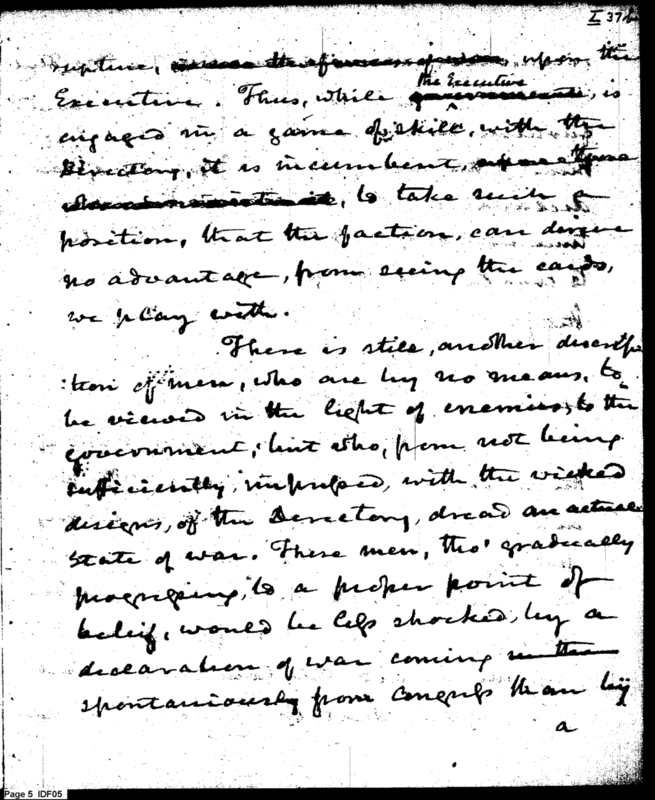 I 37
rupture, upon the
Executive. Thus, while the Executive government, is
engaged in a game of skill, with the
Directory, it is incumbent, upon those
who administer it, to take such a
position, that the faction, can derive
no advantage, from seeing the cards,
we play with.
There is still, another descrip
:tion of men, who are by no means, to
be viewed in the light of enemies, to the
government; but who, from not being
sufficiently, impressed, with the wicked
designs, of the Directory, dread an actual
state of war. These men, tho' gradually
progressing, to a proper point of
belief, would be less shocked, by a
declaration of war coming in the
spontaniously from Congress than by
a
Page 5 IDF05